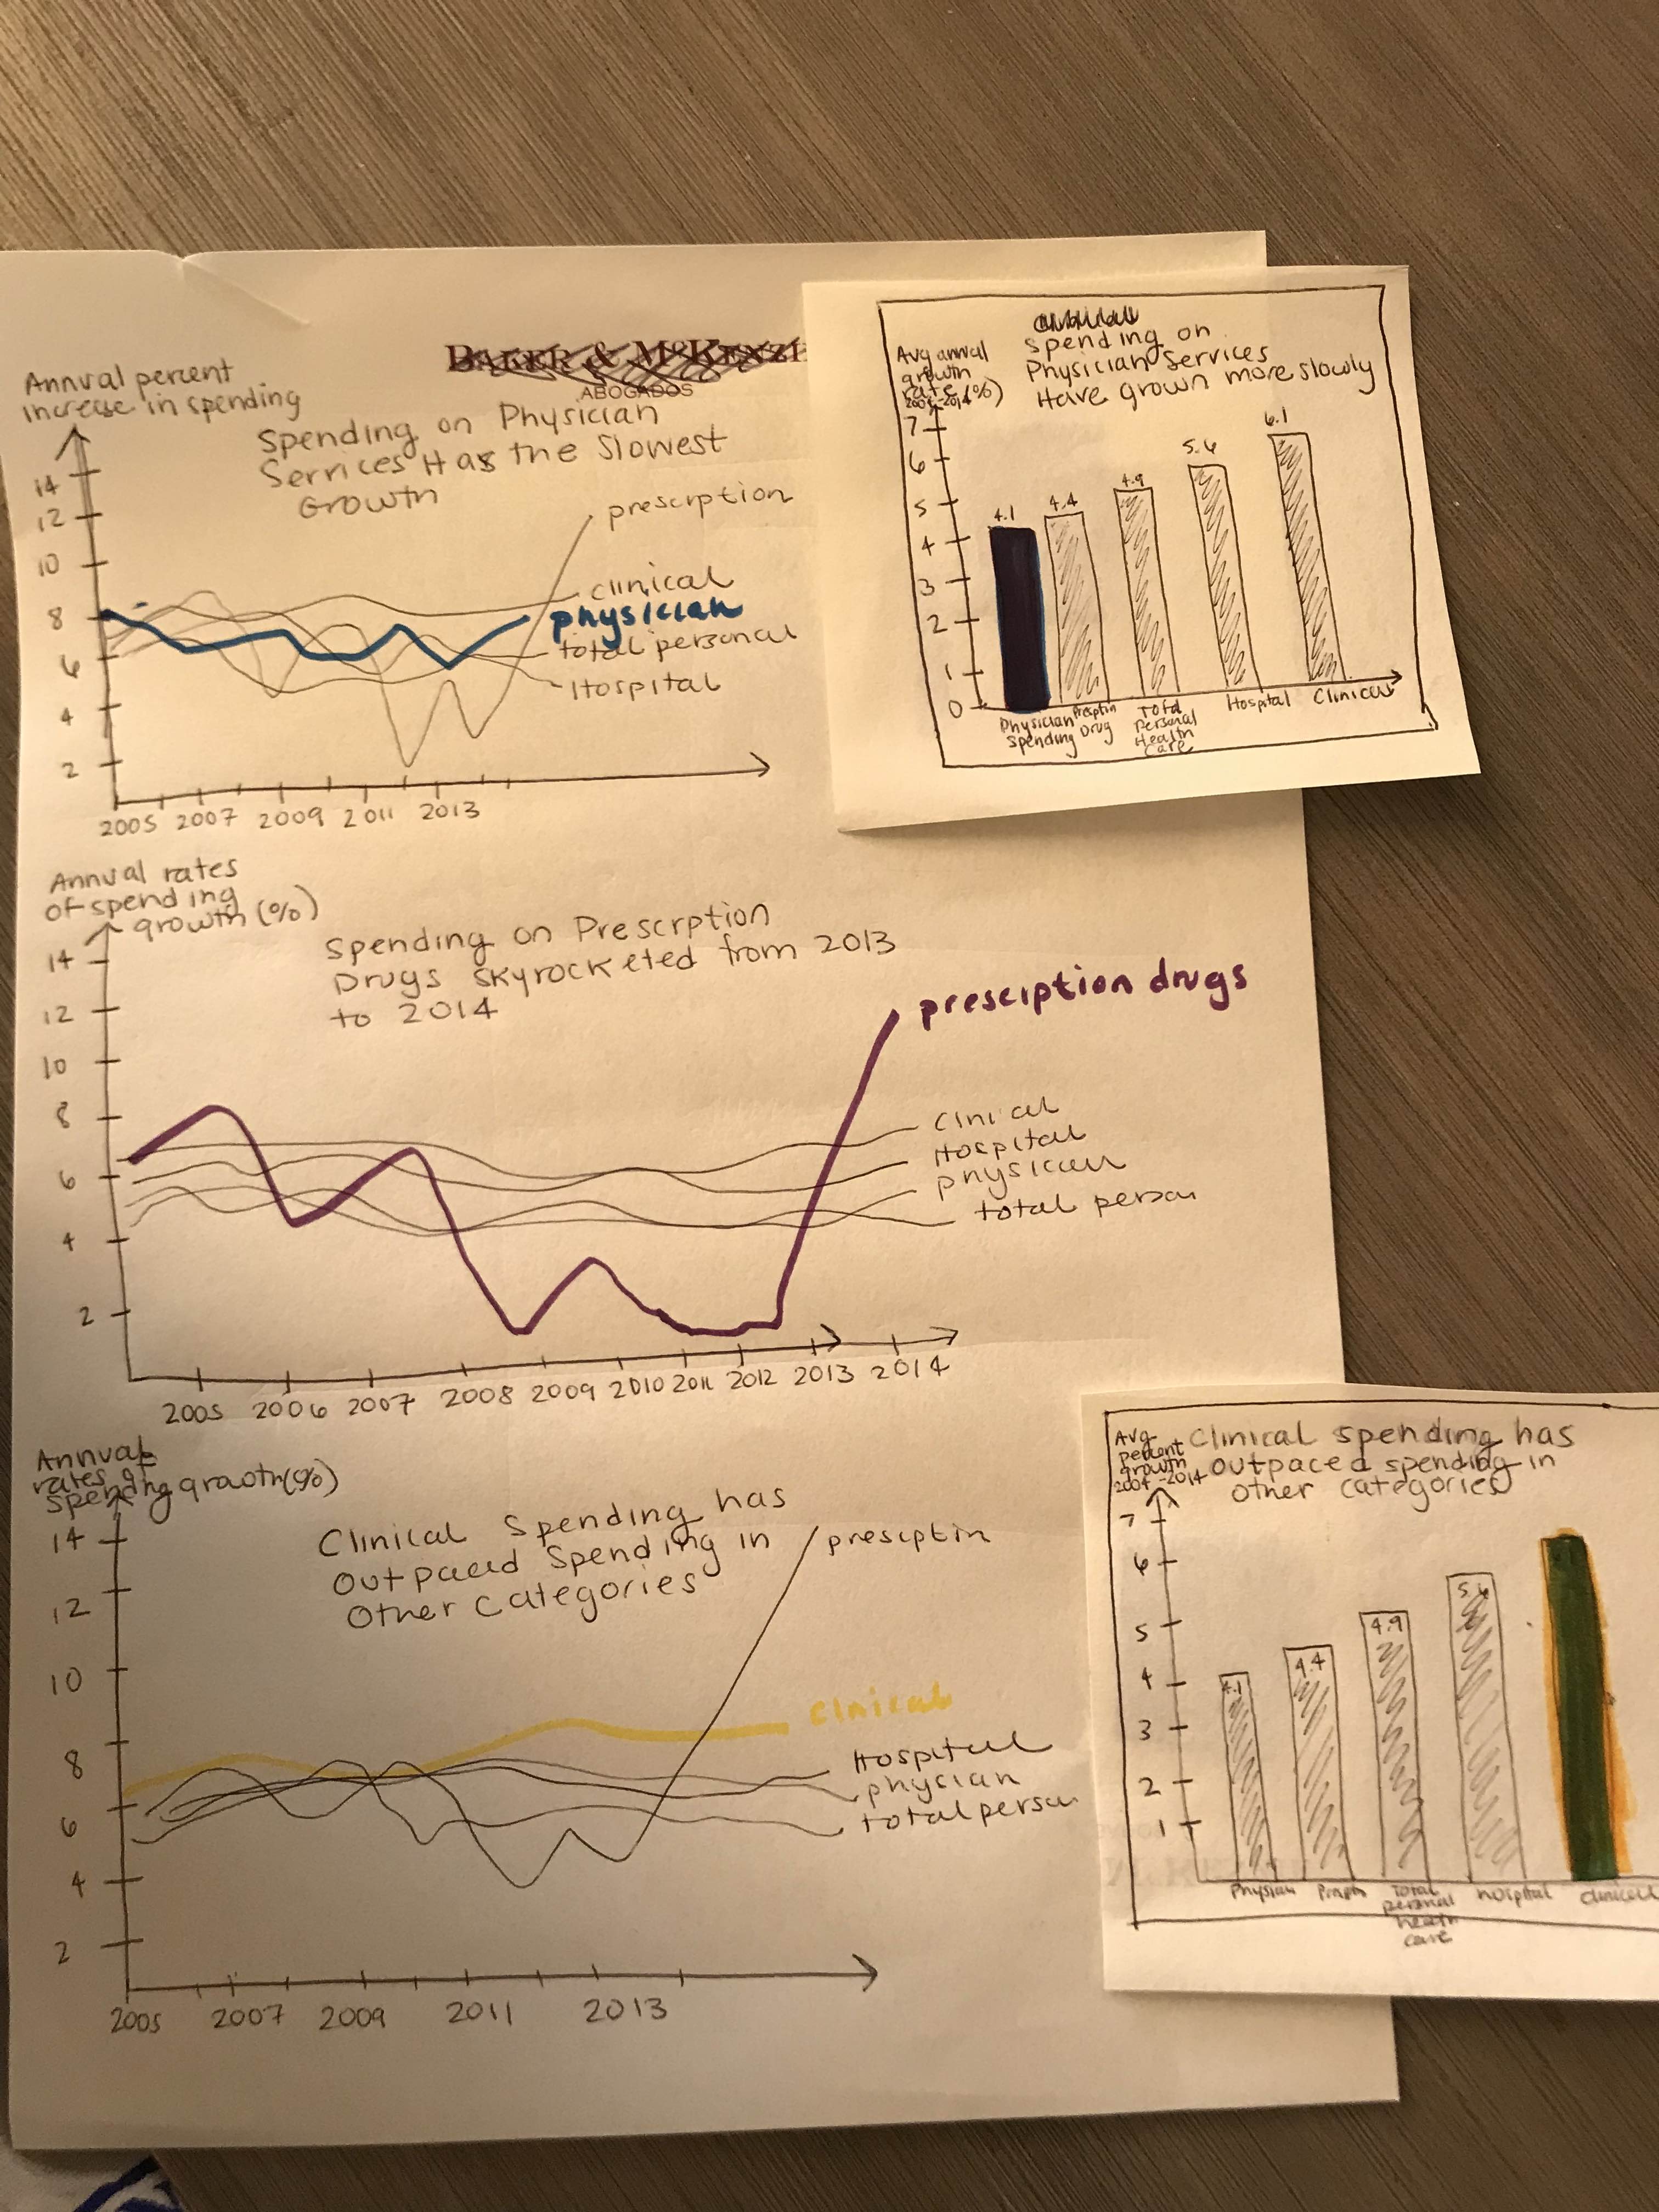 BAKER & MCKENZIE
ABOGADOS
Annual percent
increase in spending
Spending on Physician
Services Has the Slowest
Growth
14
12
10
8
6
4
2
prescrption
clinical
physician
total personal
Hospital
2005 2007 2009 2011 2013
Avg annval
growth
rate (%)
2004-2014
Spending on
Physician Services
Have grown more slowly
7
6
5
4
3
2
1
0
4.1
4.4
4.9
5.6
6.1
Physician
Spending
Presptin
Drug
Total
Personal
Health
Care
Hospital
Clinical
Annual rates
of spending
growth (%)
Spending on Prescrption
Drugs skyrocketed from 2013
to 2014
14
12
10
8
6
4
2
presciption drugs
Clnical
Hospital
physician
total person
2005 2006 2007 2008 2009 2010 2011 2012 2013 2014
Annual
rates of
spending growth(%)
Clinical Spending has
Outpaced Spending in
Other Categories
14
12
10
8
6
4
2
presciptin
Clnical
Hospital
physian
total person
2005 2007 2009 2011 2013
Avg
percent
growth
2004-2014
Clinical spending has
outpaced spending in
other categories
7
6
5
4
3
2
1
4.1
4.4
4.9
5.6
Physian
Total
personal
health
care
hospital
clinical